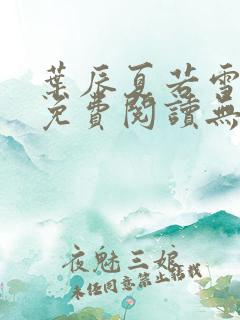 葉辰夏若雪
免費閱讀無
夜魅三娘
未經同意禁止轉載